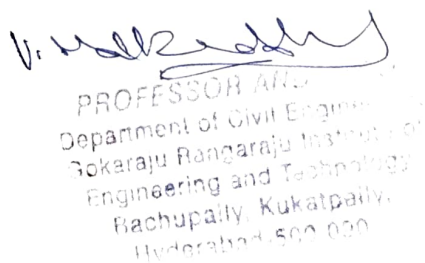 V. Mallareddy
PROFESSOR AND
Department of Civil Engin
Gokaraju Rangaraju Institute of
Engineering and Technology
Bachupally, Kukatpally,
Hyderabad-500 090